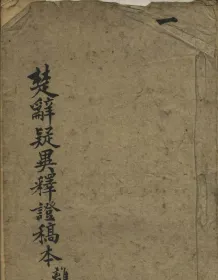 一
楚辭疑異釋證稿本